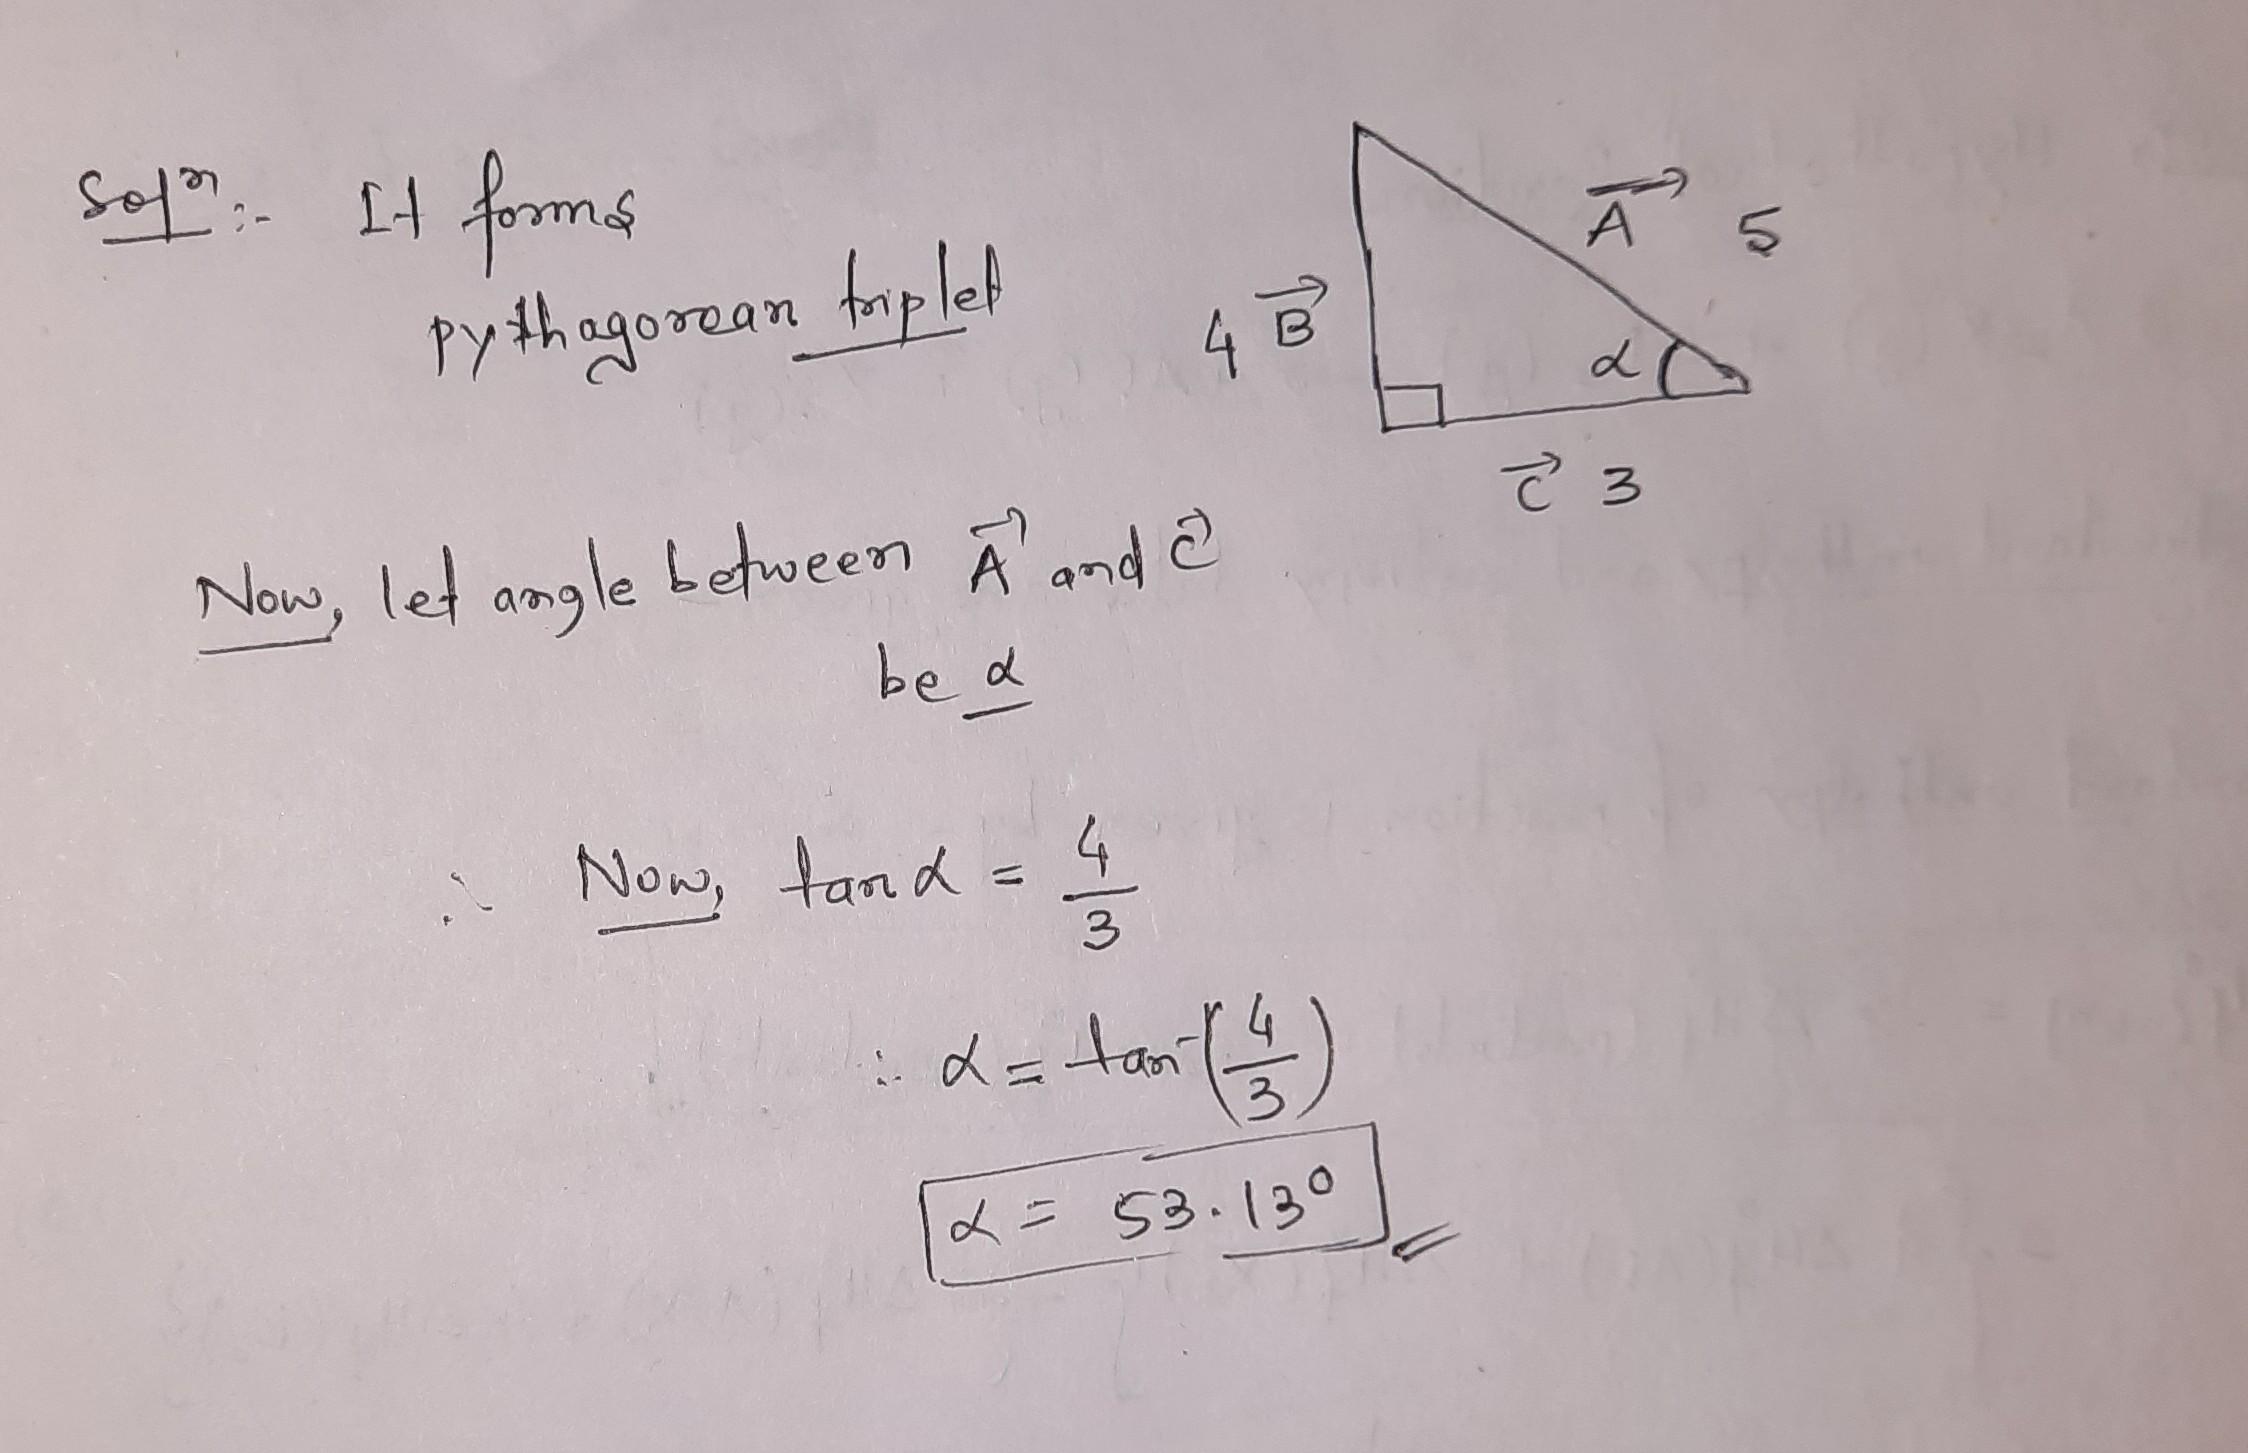 Solⁿ:- It forms
pythagorean triplet
A⃗ 5
4 B⃗
α
C⃗ 3
Now, let angle between A⃗ and C⃗
be α
∴ Now, tan α = 4/3
∴ α = tan⁻(4/3)
α = 53.13°